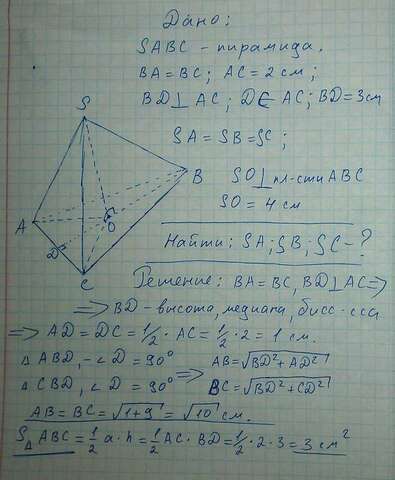 Дано:
SABC - пирамида.
BA = BC; AC = 2 см;
BD ⊥ AC; D ∈ AC; BD = 3 см
SA = SB = SC;
SO ⊥ пл-сти ABC
SO = 4 см
Найти: SA; SB; SC - ?
S
A
B
O
D
C
Решение: BA = BC, BD ⊥ AC ⇒
⇒ BD - высота, медиана, бисс-сса
⇒ AD = DC = 1/2 · AC = 1/2 · 2 = 1 см.
△ ABD, -∠D = 90° ⇒ AB = √BD² + AD²
△ CBD, ∠D = 90° BC = √BD² + CD²
AB = BC = √1+9 = √10 см.
S△ ABC = 1/2 a·h = 1/2 AC · BD = 1/2 · 2 · 3 = 3 см²